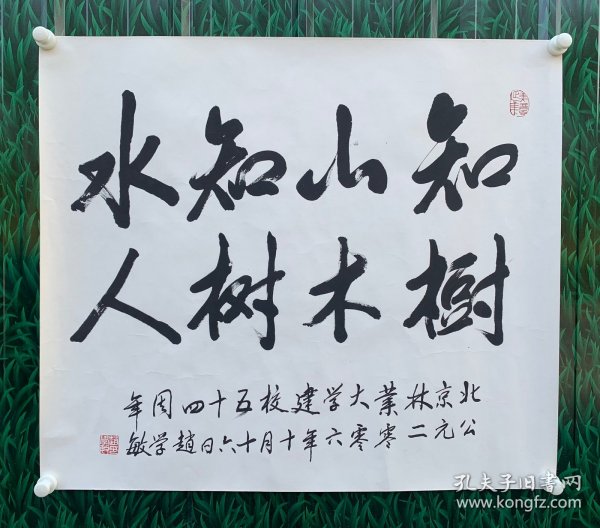 知山知水
樹木树人
北京林業大学建校五十四周年
公元二零零六年十月十六日趙学敏
孔夫子旧書网
www.kongfz.com